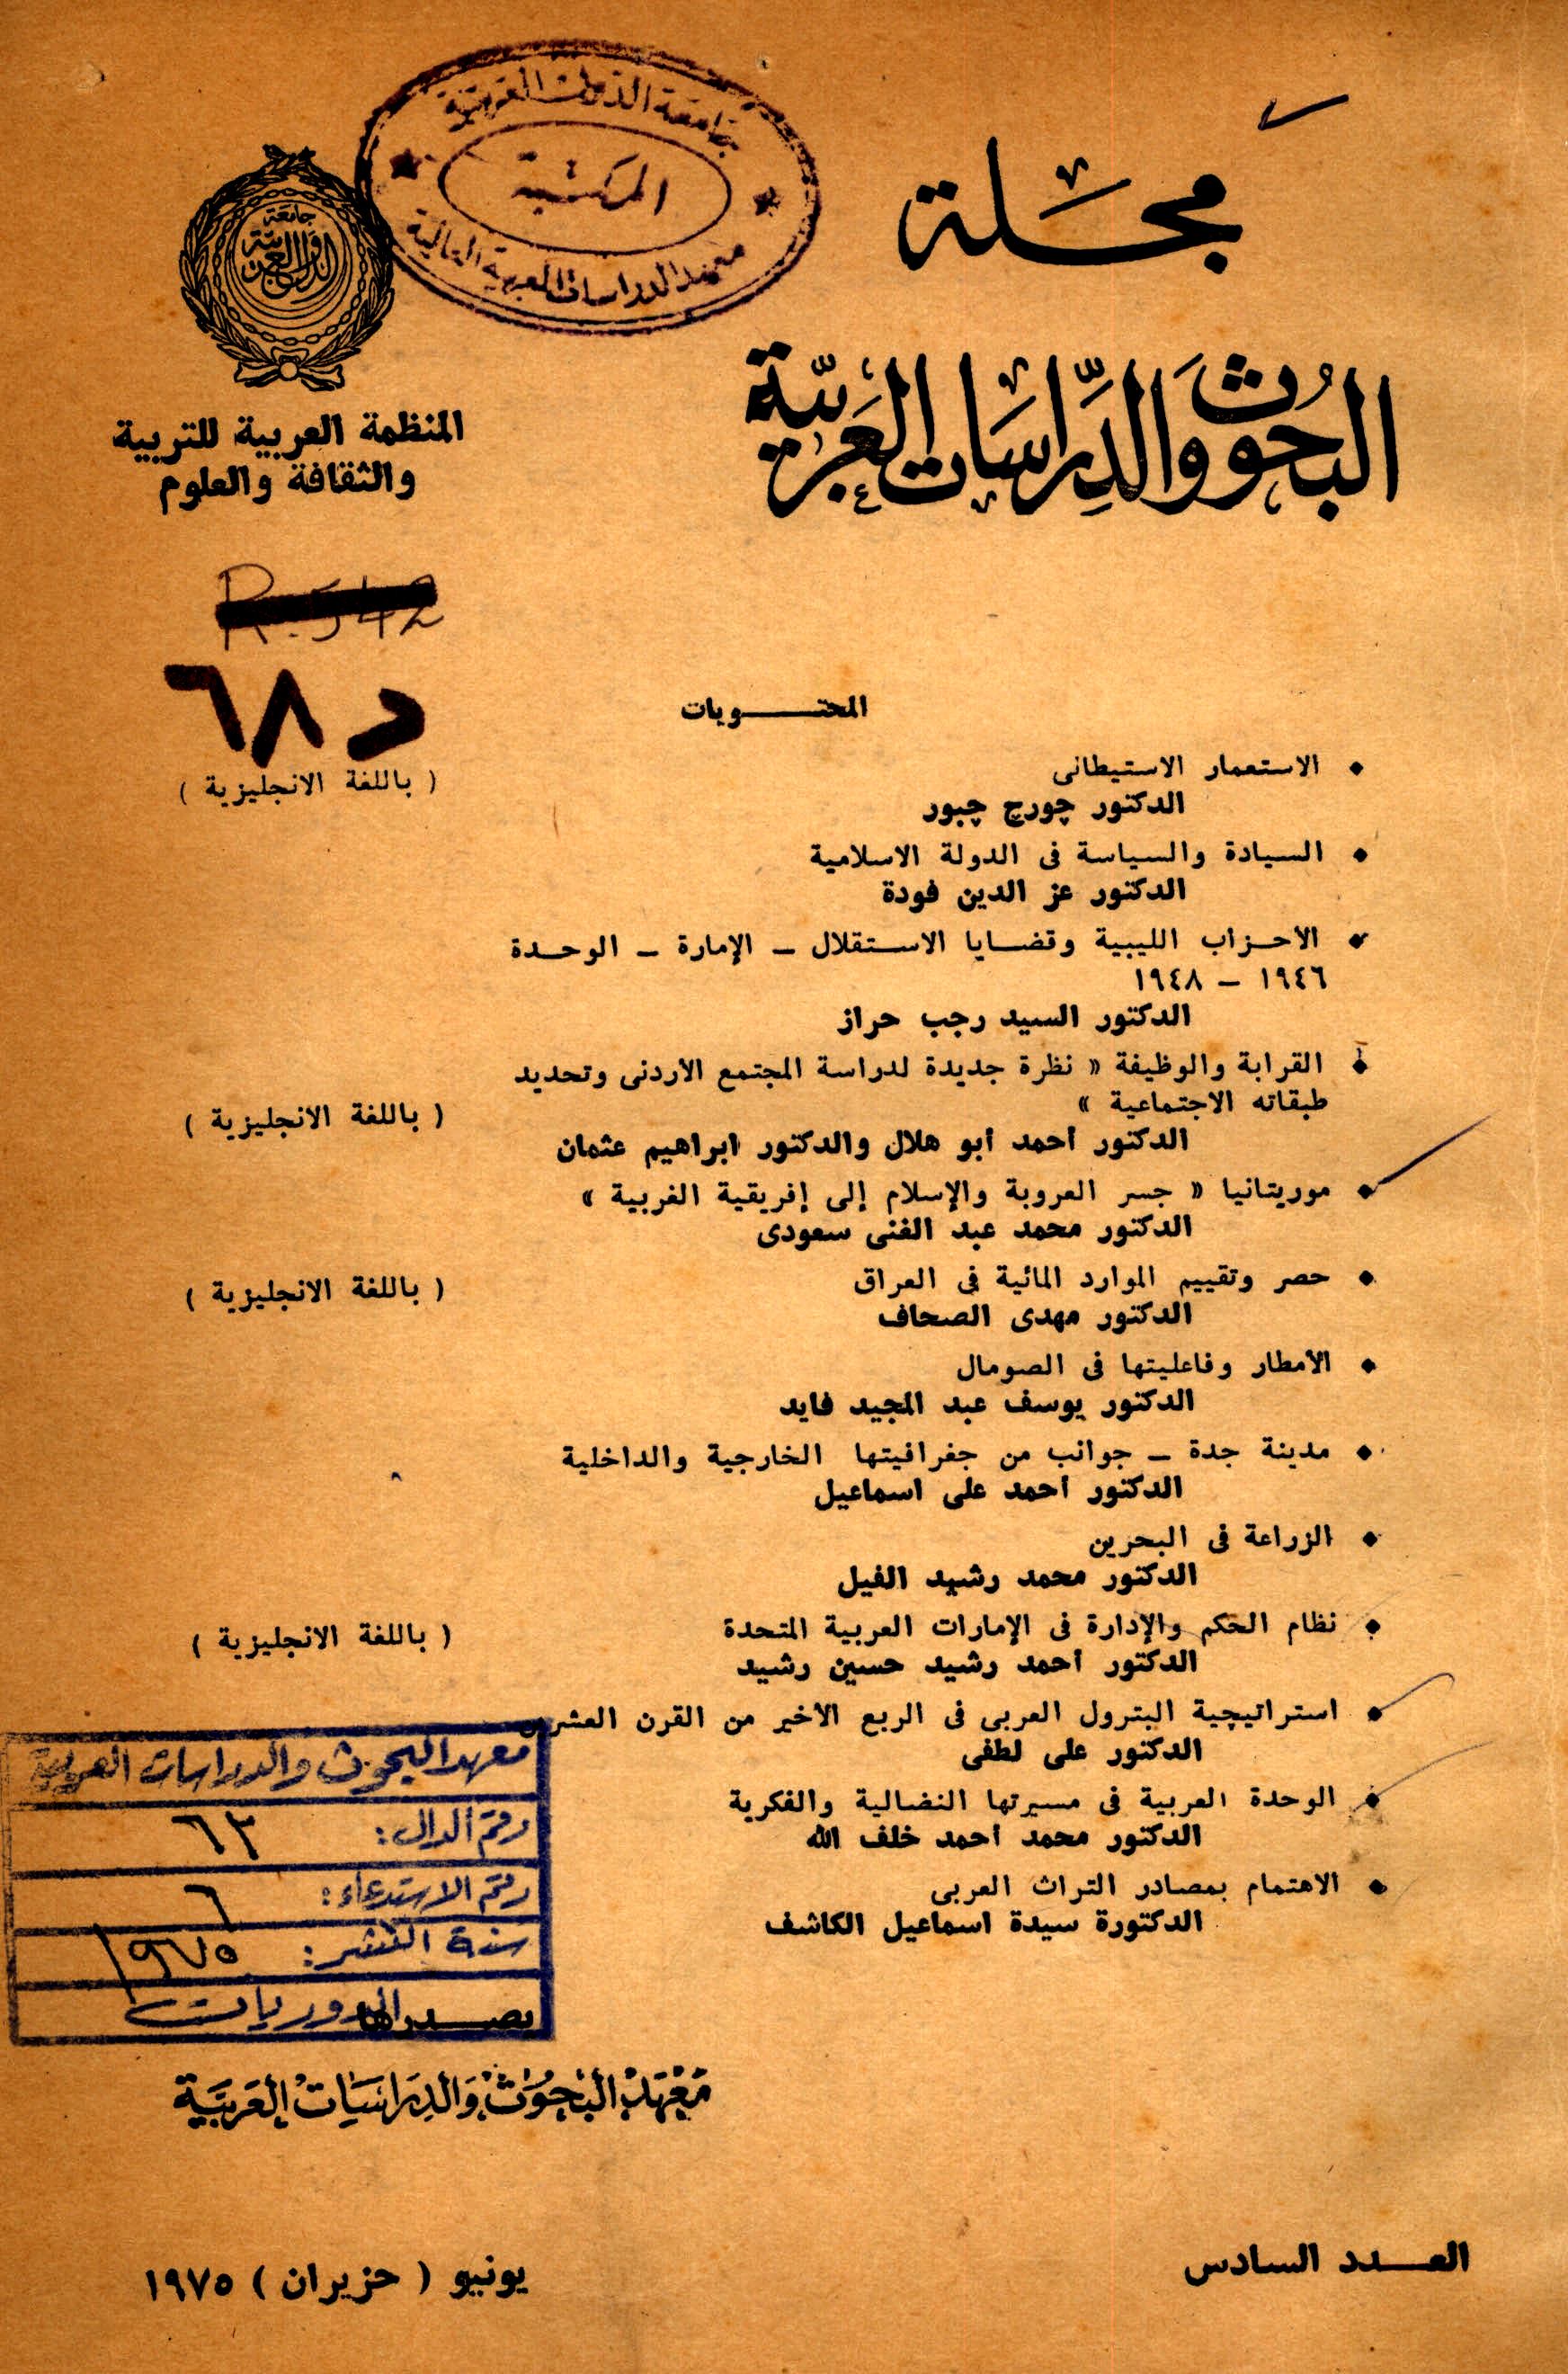 جامعة الدول العربية
المكتبة
معهد الدراسات العربية العالية
مجلة
جامعة
الدول العربية
البحوث والدراسات العربية
المنظمة العربية للتربية
والثقافة والعلوم
R.542
د ٦٨
المحتـــويات
• الاستعمار الاستيطانى ( باللغة الانجليزية )
الدكتور چورچ چبور
• السيادة والسياسة فى الدولة الاسلامية
الدكتور عز الدين فودة
• الأحزاب الليبية وقضايا الاستقلال – الإمارة – الوحدة
١٩٤٦ – ١٩٤٨
الدكتور السيد رجب حراز
• القرابة والوظيفة « نظرة جديدة لدراسة المجتمع الأردنى وتحديد
طبقاته الاجتماعية » ( باللغة الانجليزية )
الدكتور أحمد أبو هلال والدكتور ابراهيم عثمان
• موريتانيا « جسر العروبة والإسلام إلى إفريقية الغربية »
الدكتور محمد عبد الغنى سعودى
• حصر وتقييم الموارد المائية فى العراق ( باللغة الانجليزية )
الدكتور مهدى الصحاف
• الأمطار وفاعليتها فى الصومال
الدكتور يوسف عبد المجيد فايد
• مدينة جدة – جوانب من جغرافيتها الخارجية والداخلية
الدكتور أحمد على اسماعيل
• الزراعة فى البحرين
الدكتور محمد رشيد الفيل
• نظام الحكم والإدارة فى الإمارات العربية المتحدة ( باللغة الانجليزية )
الدكتور أحمد رشيد حسين رشيد
• استراتيجية البترول العربى فى الربع الأخير من القرن العشرين
الدكتور على لطفى
• الوحدة العربية فى مسيرتها النضالية والفكرية
الدكتور محمد أحمد خلف الله
• الاهتمام بمصادر التراث العربى
الدكتورة سيدة اسماعيل الكاشف
معهد البحوث والدراسات العربية
رقم الدال: ٦٣
رقم الاستدعاء: ٦
سنة النشر: ١٩٧٥
الدوريات
يصــدرها
معهد البحوث والدراسات العربية
العــدد السادس
يونيو ( حزيران ) ١٩٧٥